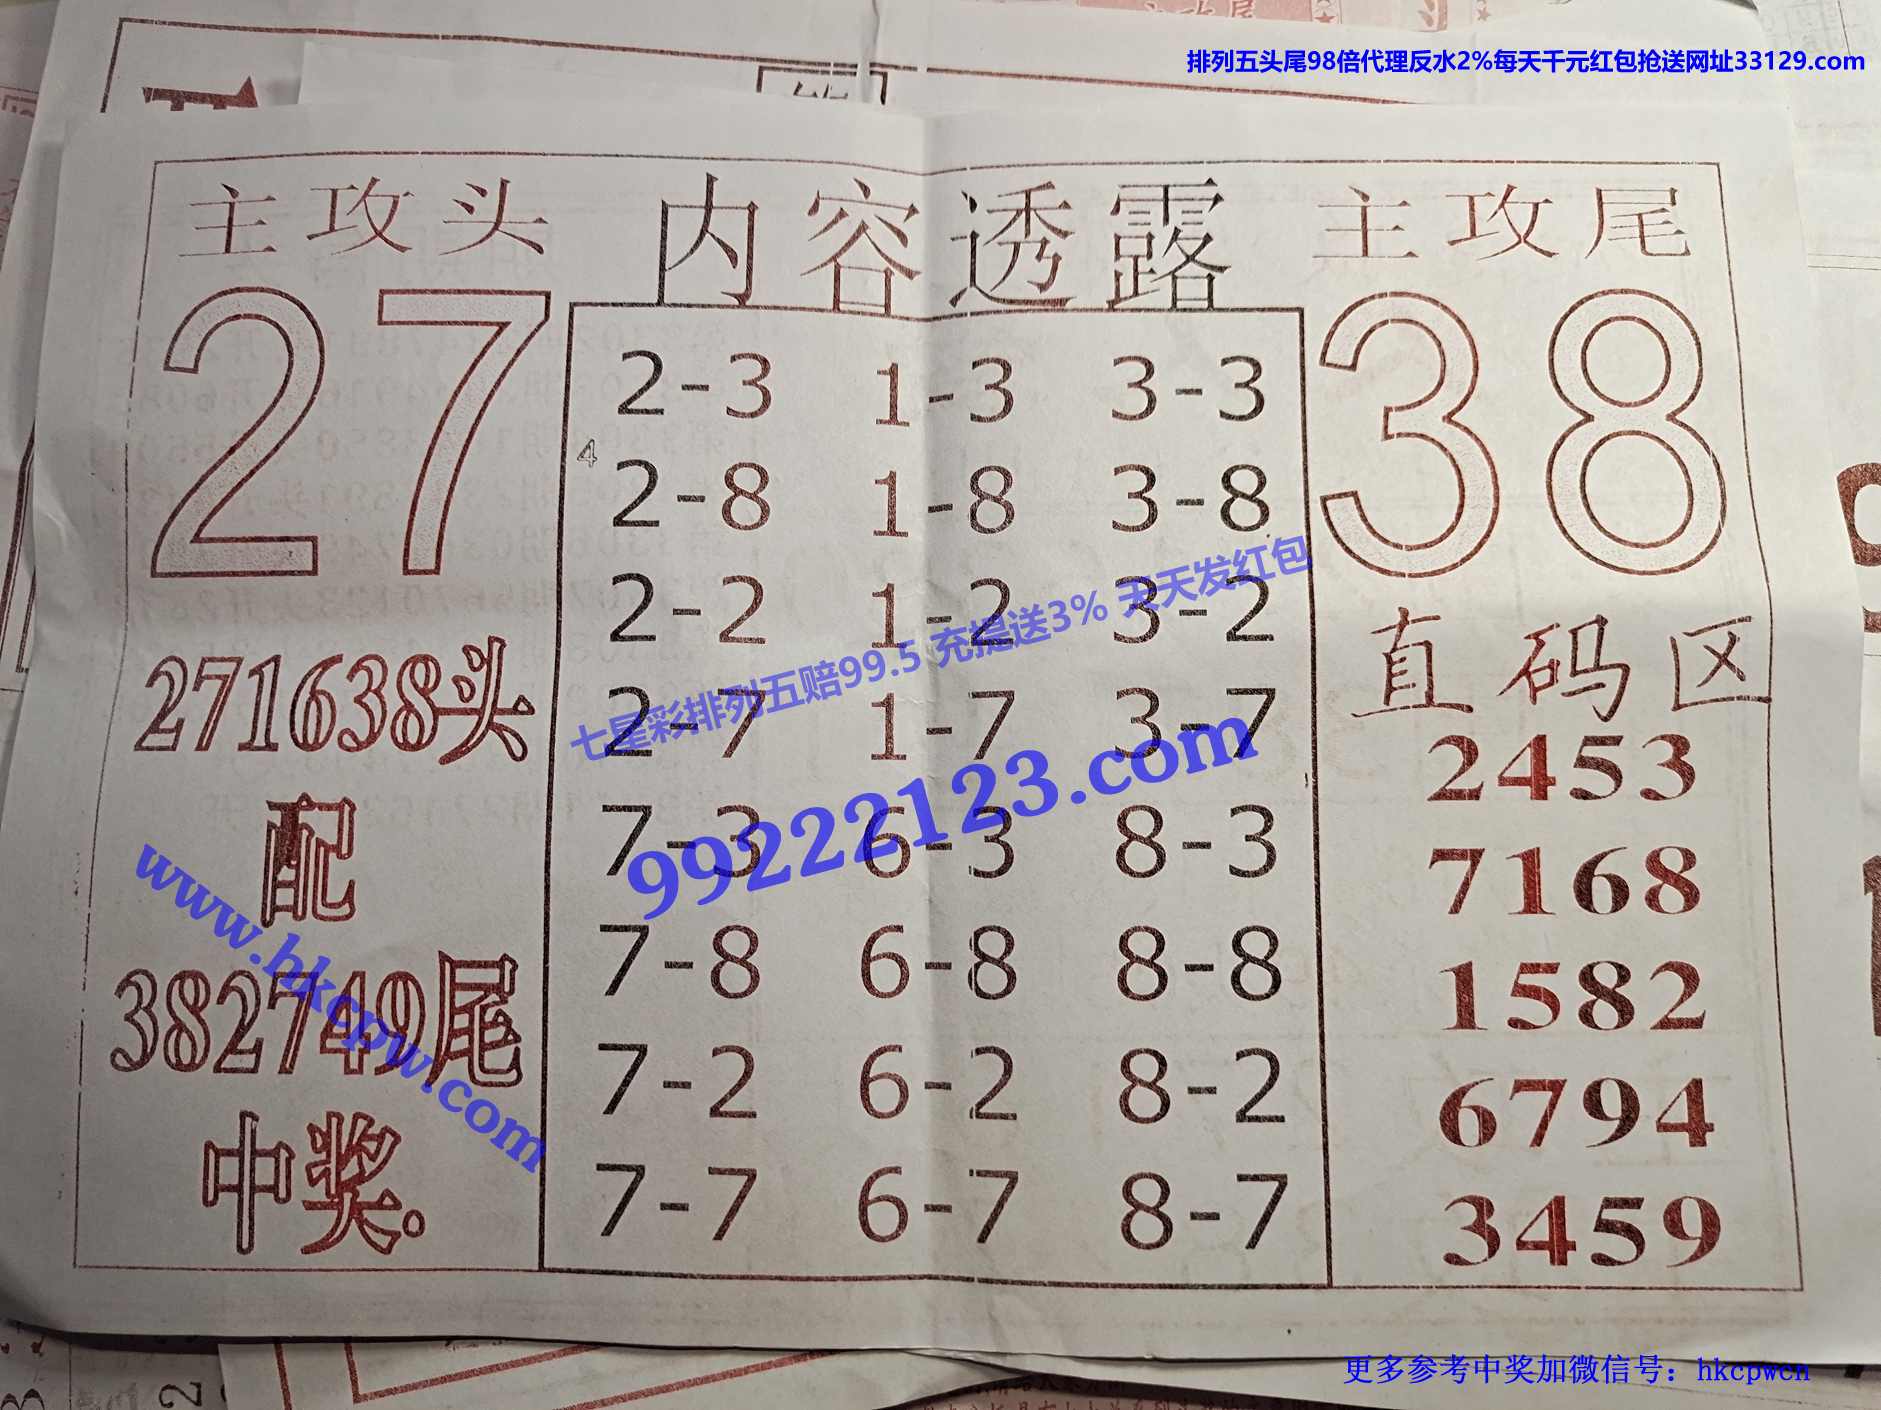 排列五头尾98倍代理反水2%每天千元红包抢送网址33129.com
主攻头 内容透露 主攻尾
27
38
2-3 1-3 3-3
4
2-8 1-8 3-8
2-2 1-2 3-2
2-7 1-7 3-7
7-3 6-3 8-3
7-8 6-8 8-8
7-2 6-2 8-2
7-7 6-7 8-7
271638头
配
382749尾
中奖.
直码区
2453
7168
1582
6794
3459
七星彩排列五赔99.5 充提送3% 天天发红包
99222123.com
www.hkcpw.com
更多参考中奖加微信号：hkcpwcn